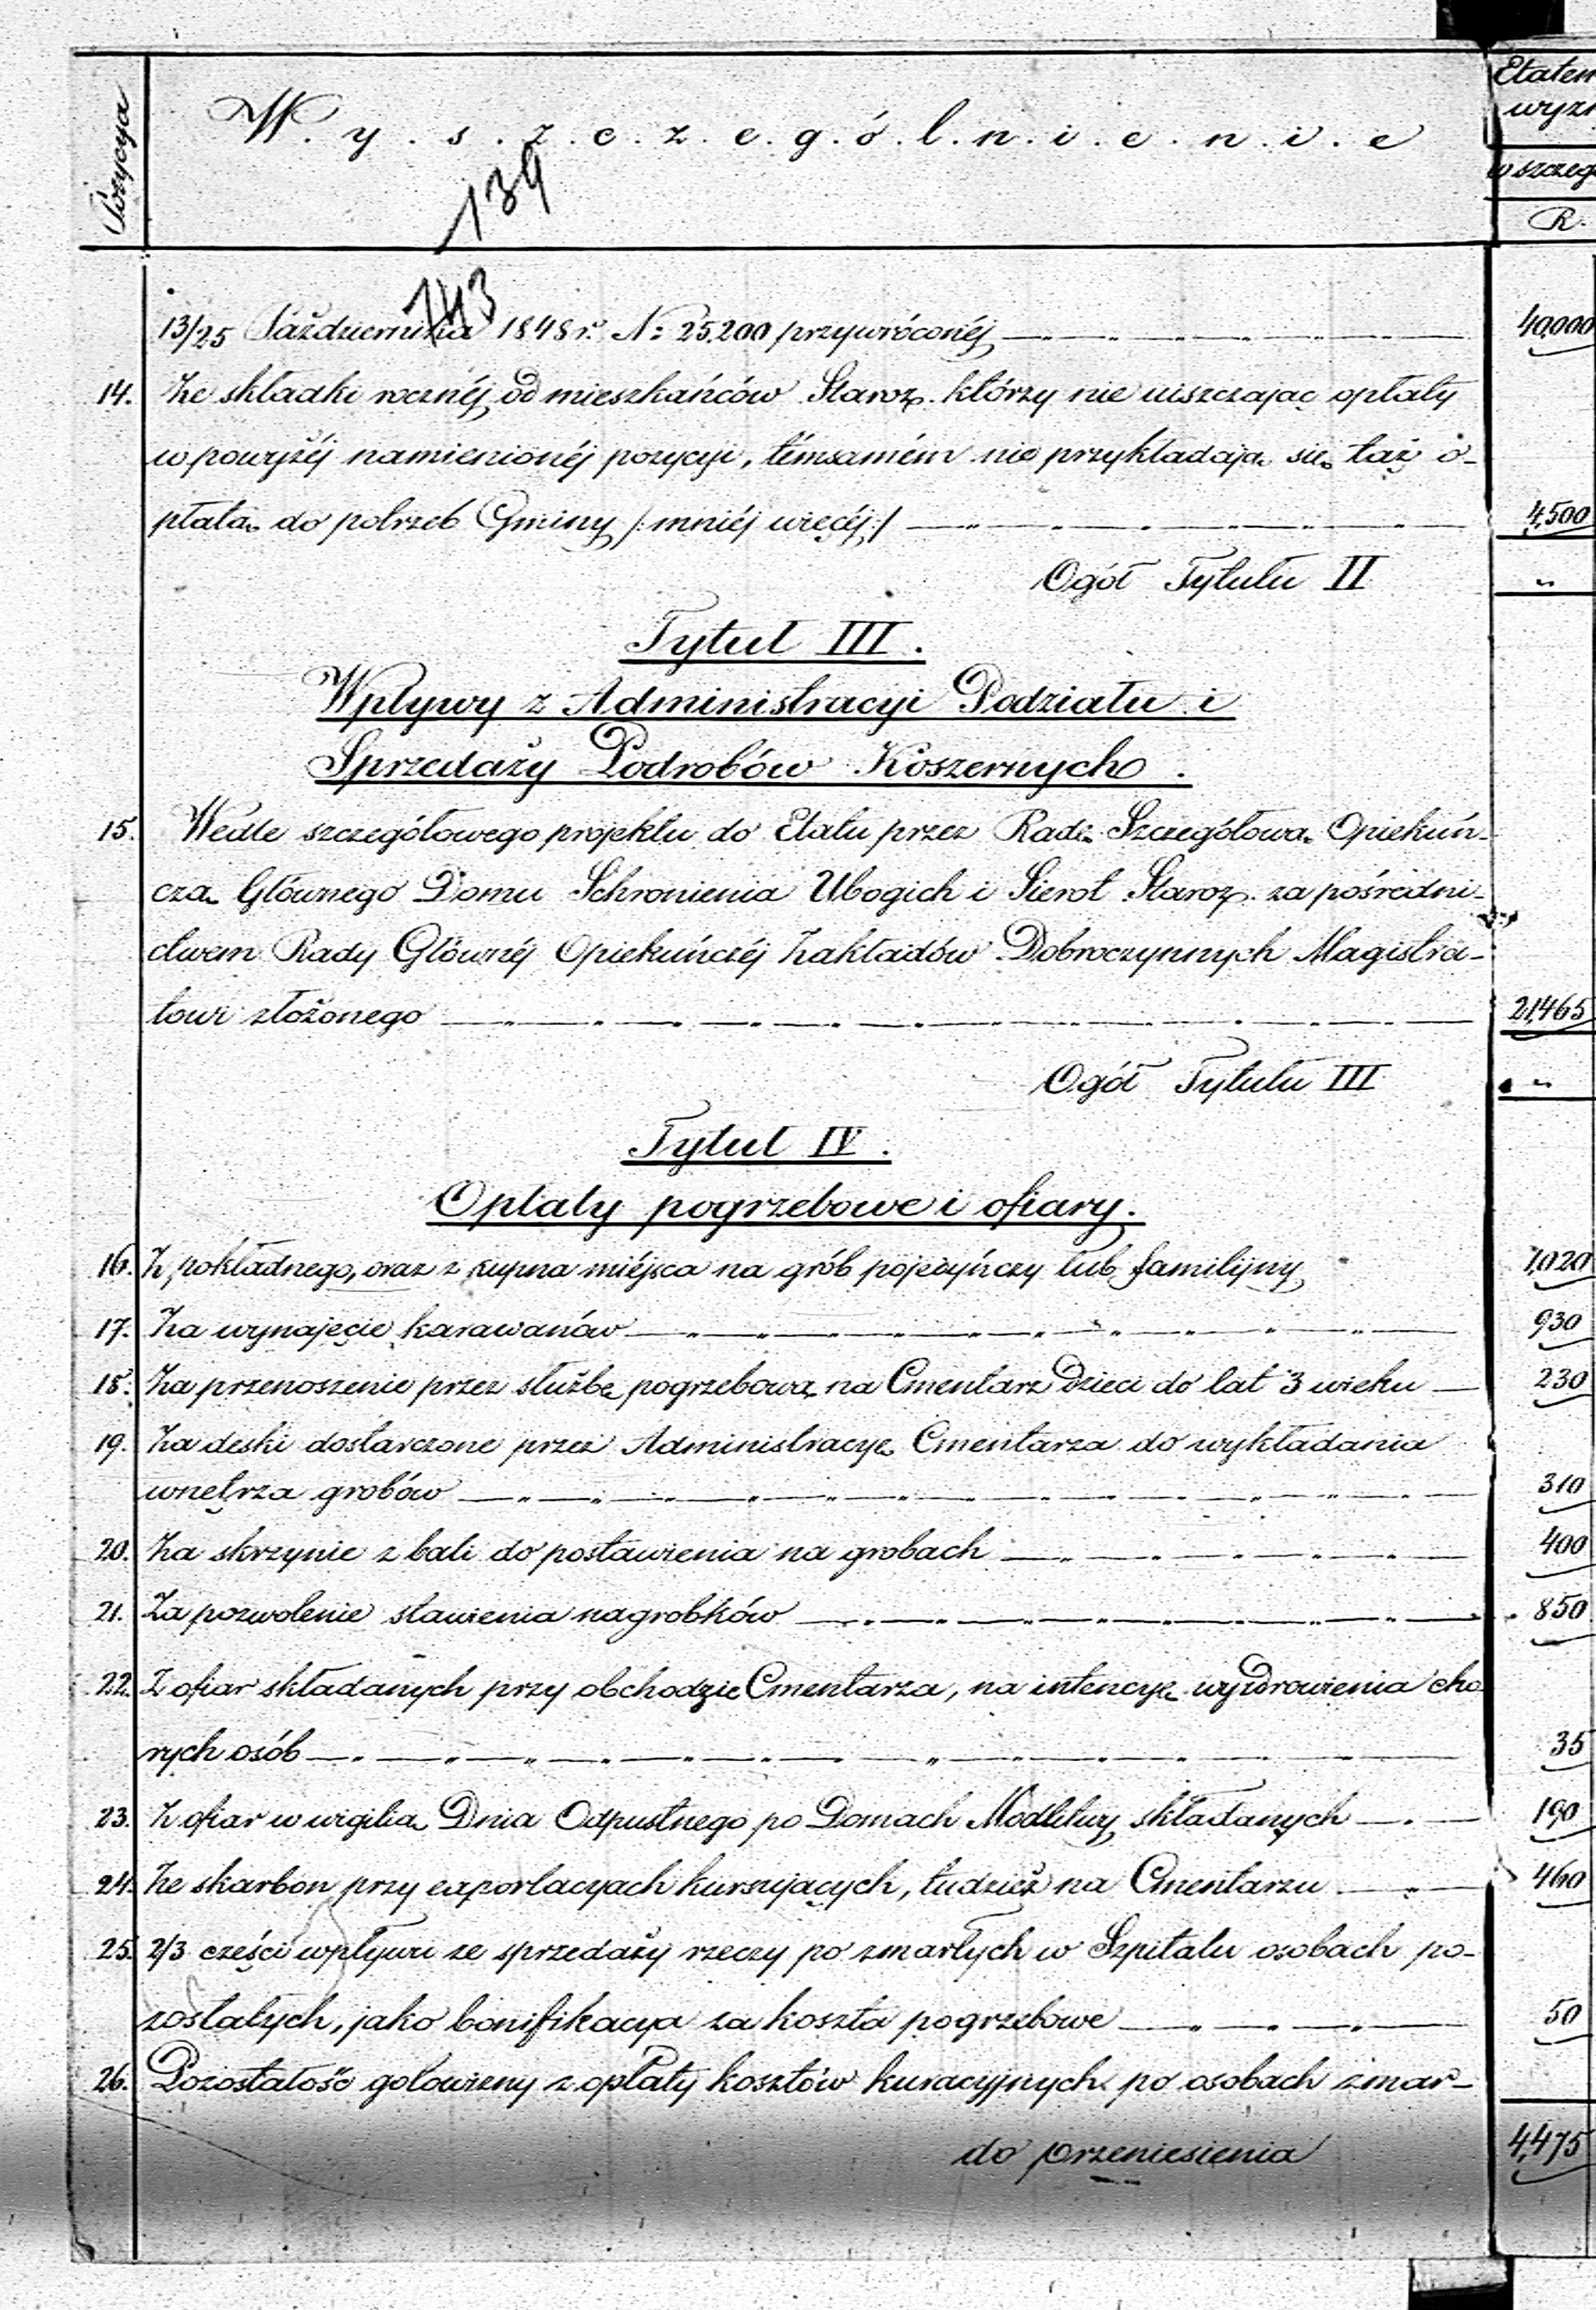 Pozycya
W. y. s. z. c. z. e. g. ó. l. n. i. e. n. i. e
Etatem
wyzn
w szczeg
R.
139
143
13/25 Października 1848 r. N: 25.200 przywróconéj 40,000
14. Ze składki rocznéj od mieszkańców Staroz. którzy nie uiszczając opłaty
w powyżéj namienionéj pozycyi, témsamém nie przykładają się taż o-
płatą do potrzeb Gminy /: mniéj więcéj :/ 4,500
Ogół Tytułu II "
Tytuł III.
Wpływy z Administracyi Podziału i
Sprzedaży Podrobów Koszernych.
15. Wedle szczegółowego projektu do Etatu przez Radę Szczegółową Opiekuń-
czą Głównego Domu Schronienia Ubogich i Sierot Staroz. za pośredni-
ctwem Rady Głównéj Opiekuńczéj Zakładów Dobroczynnych Magistra-
towi złożonego 21,465
Ogół Tytułu III "
Tytuł IV.
Opłaty pogrzebowe i ofiary.
16. Z pokładnego, oraz z kupna miéjsca na grób pojedyńczy lub familijny 1,020
17. Za wynajęcie karawanów 930
18. Za przenoszenie przez służbę pogrzebową na Cmentarz Dzieci do lat 3 wieku 230
19. Za deski dostarczone przez Administracyę Cmentarza do wykładania
wnętrza grobów 310
20. Za skrzynie z bali do postawienia na grobach 400
21. Za pozwolenie stawienia nagrobków 850
22. Z ofiar składanych przy obchodzie Cmentarza, na intencyę wyzdrowienia cho
rych osób 35
23. Z ofiar w wigilią Dnia Odpustnego po Domach Modlitwy składanych 190
24. Ze skarbon przy exportacyach kursujących, tudzież na Cmentarzu 460
25. 2/3 części wpływu ze sprzedaży rzeczy po zmarłych w Szpitalu osobach po-
zostałych, jako bonifikacya za koszta pogrzebowe 50
26. Pozostałość gotowizny z opłaty kosztów kuracyjnych po osobach zmar-
do przeniesienia 4,475